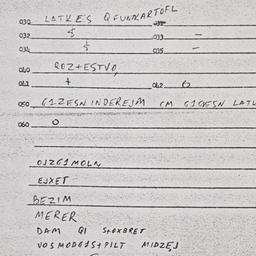 030 LATKES QFUNKARTOFL
032 5 033 -
034 5 035 -
040 ROZ+ESTVO
041 + 042
050 61ZESN INDEREJM CM G1GESN LATK
060 0
OJZG1MOLN
EJXET
BEZIM
MERER
DAM Q1 S+OXBRET
VOSMODG1S+PILT MIDZEJ